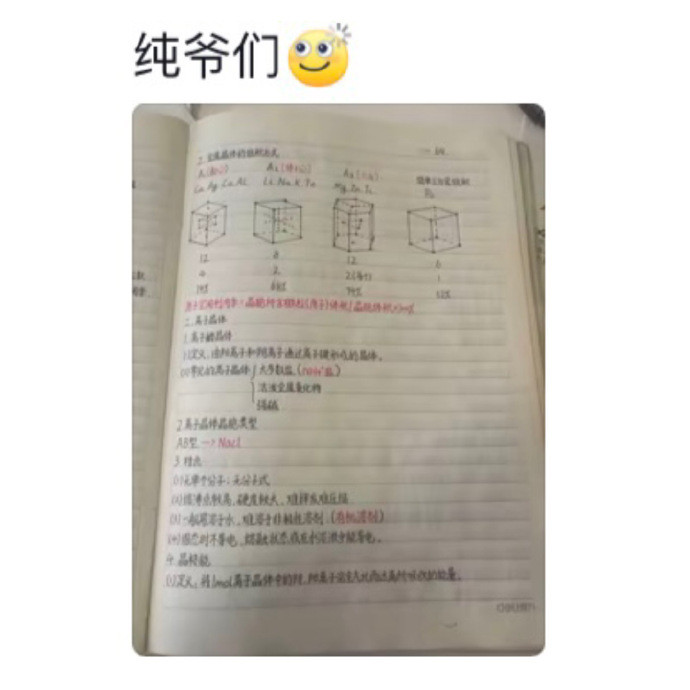 纯爷们
2. 金属晶体的堆积方式
A₁ A₂ A₃ 简单立方堆积
Cu Ag Au Al Li Na K Fe Mg Zn Ti Po
12 8 12 6
4 2 2 1
74% 68% 74% 52%
二、离子晶体
1. 离子晶体
(1)定义:由阳离子和阴离子通过离子键形成的晶体。
(2)常见的离子晶体 大多数盐
活泼金属氧化物
强碱
2. 离子晶体晶胞类型
AB型 → Nacl
3. 特点
(1)无单个分子:无分子式
(2)熔沸点较高,硬度较大,难挥发难压缩
(3)一般易溶于水,难溶于非极性溶剂(有机溶剂)
(4)固态时不导电,熔融状态或在水溶液中能导电。
4. 晶格能
(1)定义:将1mol离子晶体中的阴、阳离子完全气化而远离所吸收的能量。